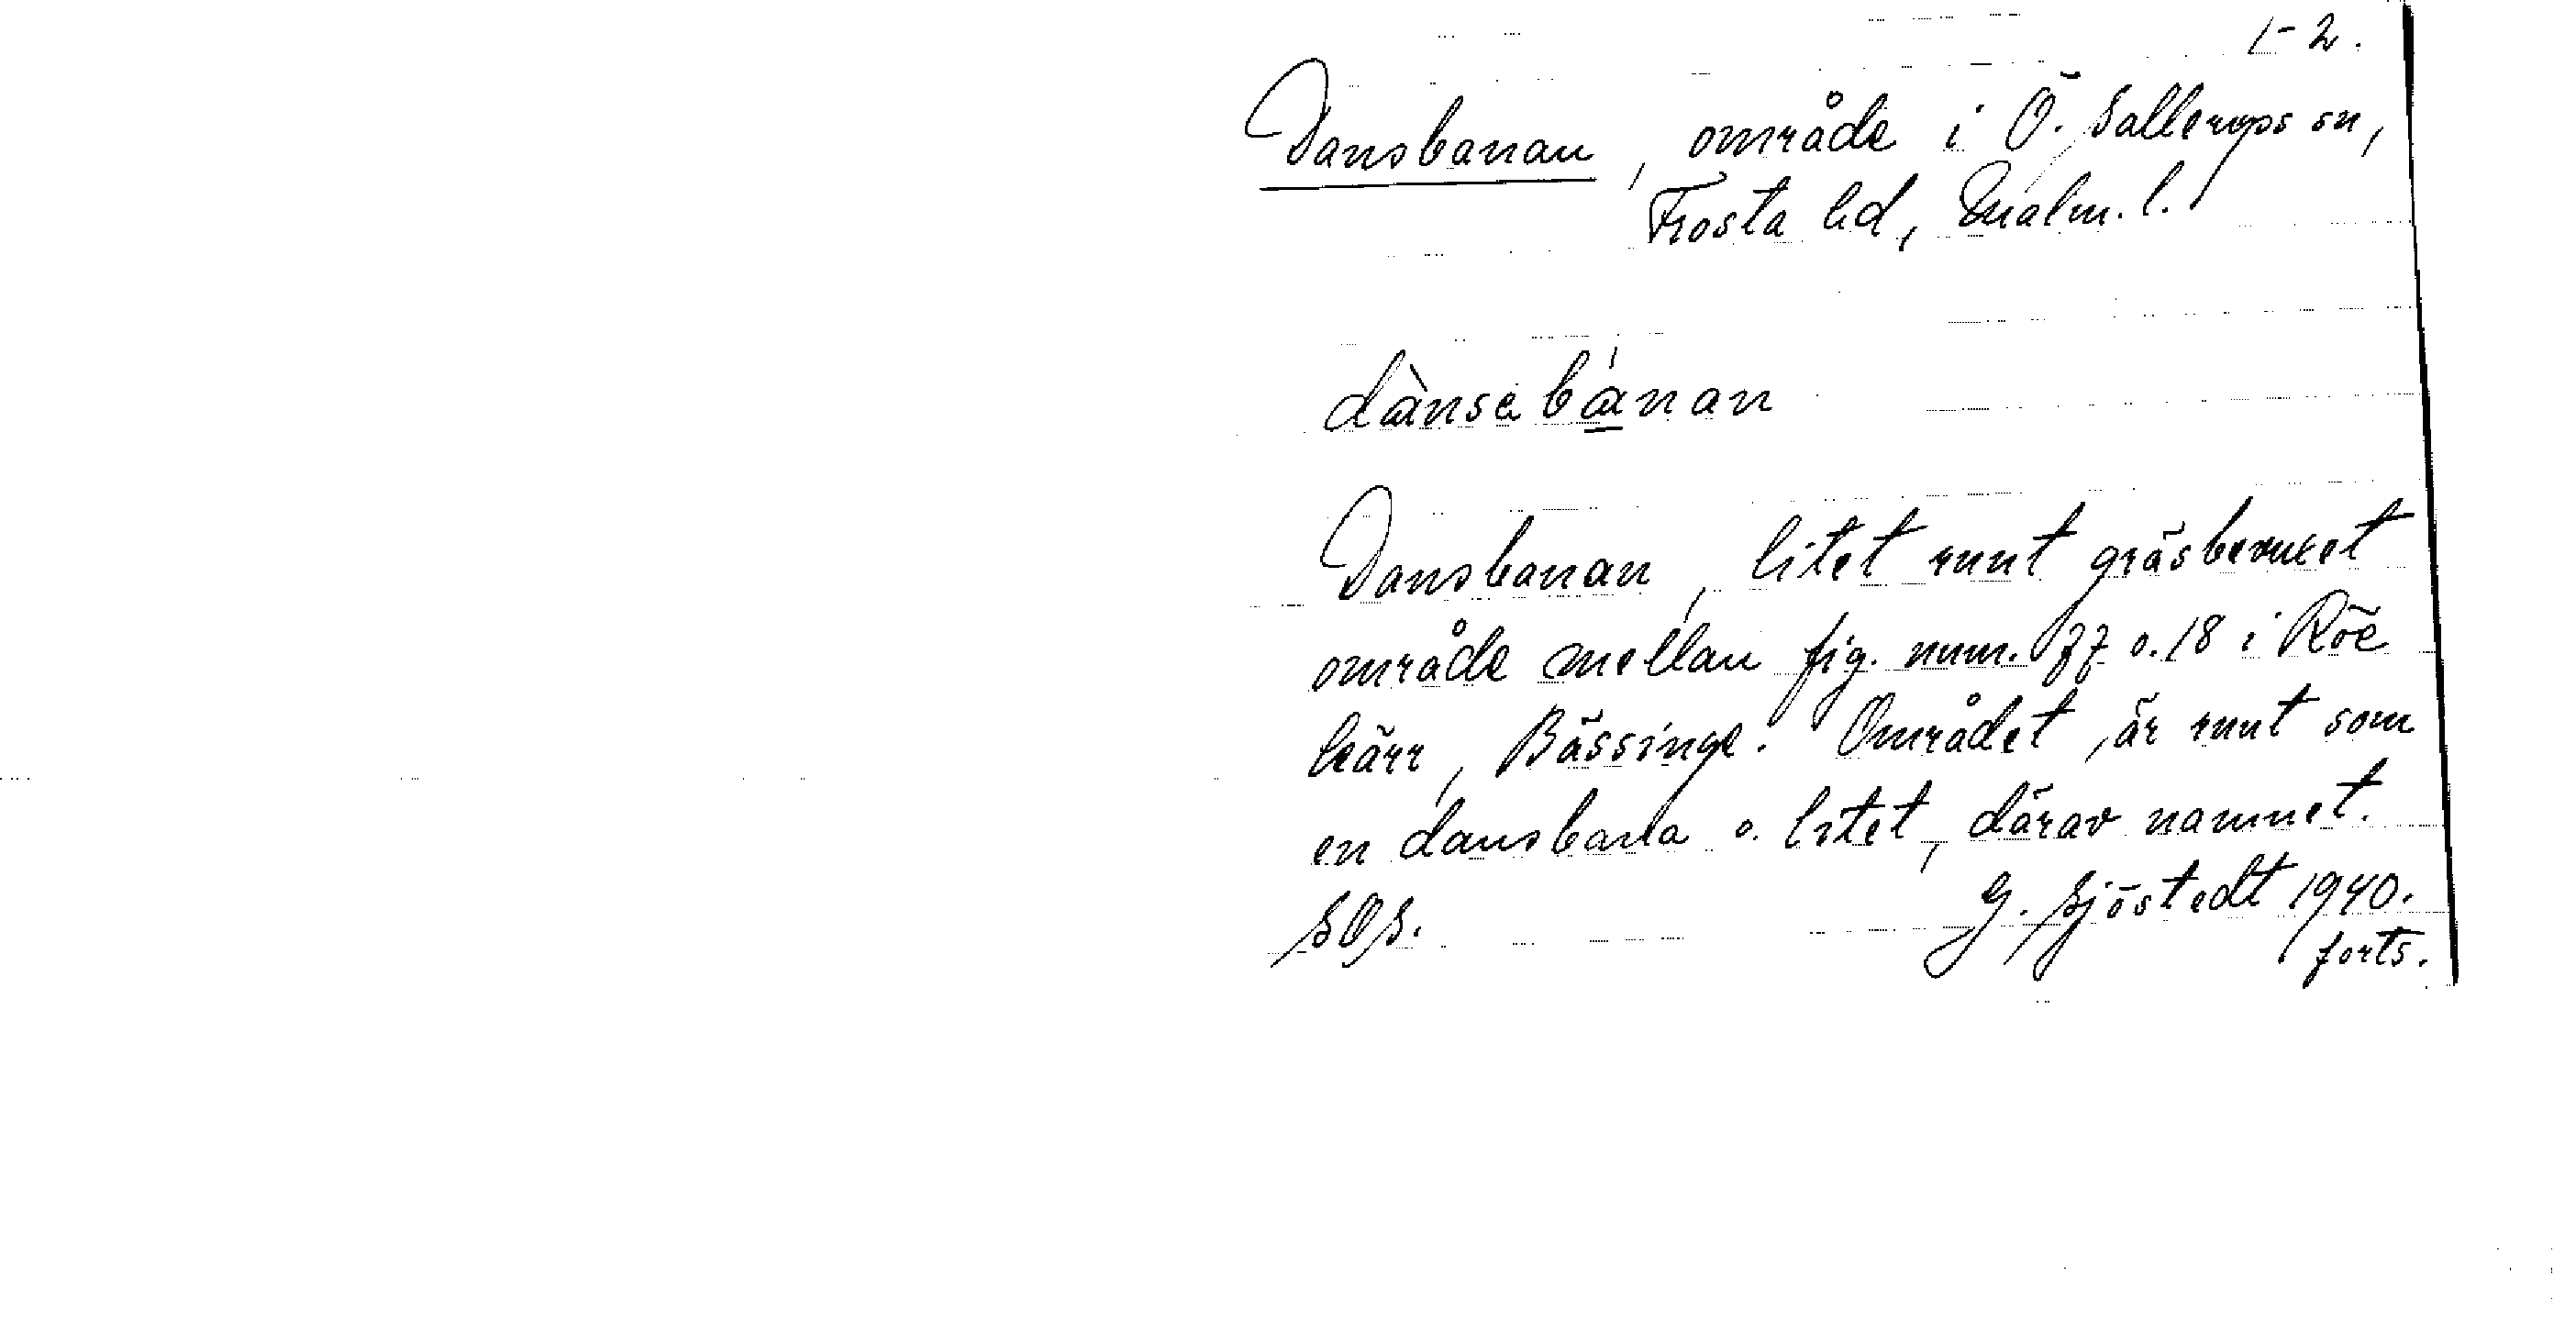 1-2.
Dansbanan, område i Ö. Sallerups sn,
Frosta hd, Malm. l.
dànsebánan
Dansbanan, litet runt gräsbevuxet
område mellan fig. num. 77 o. 18 i Röe
kärr, Bässinge. Området är runt som
en dansbana o. litet, därav namnet.
SOS. G. Sjöstedt 1940.
forts.